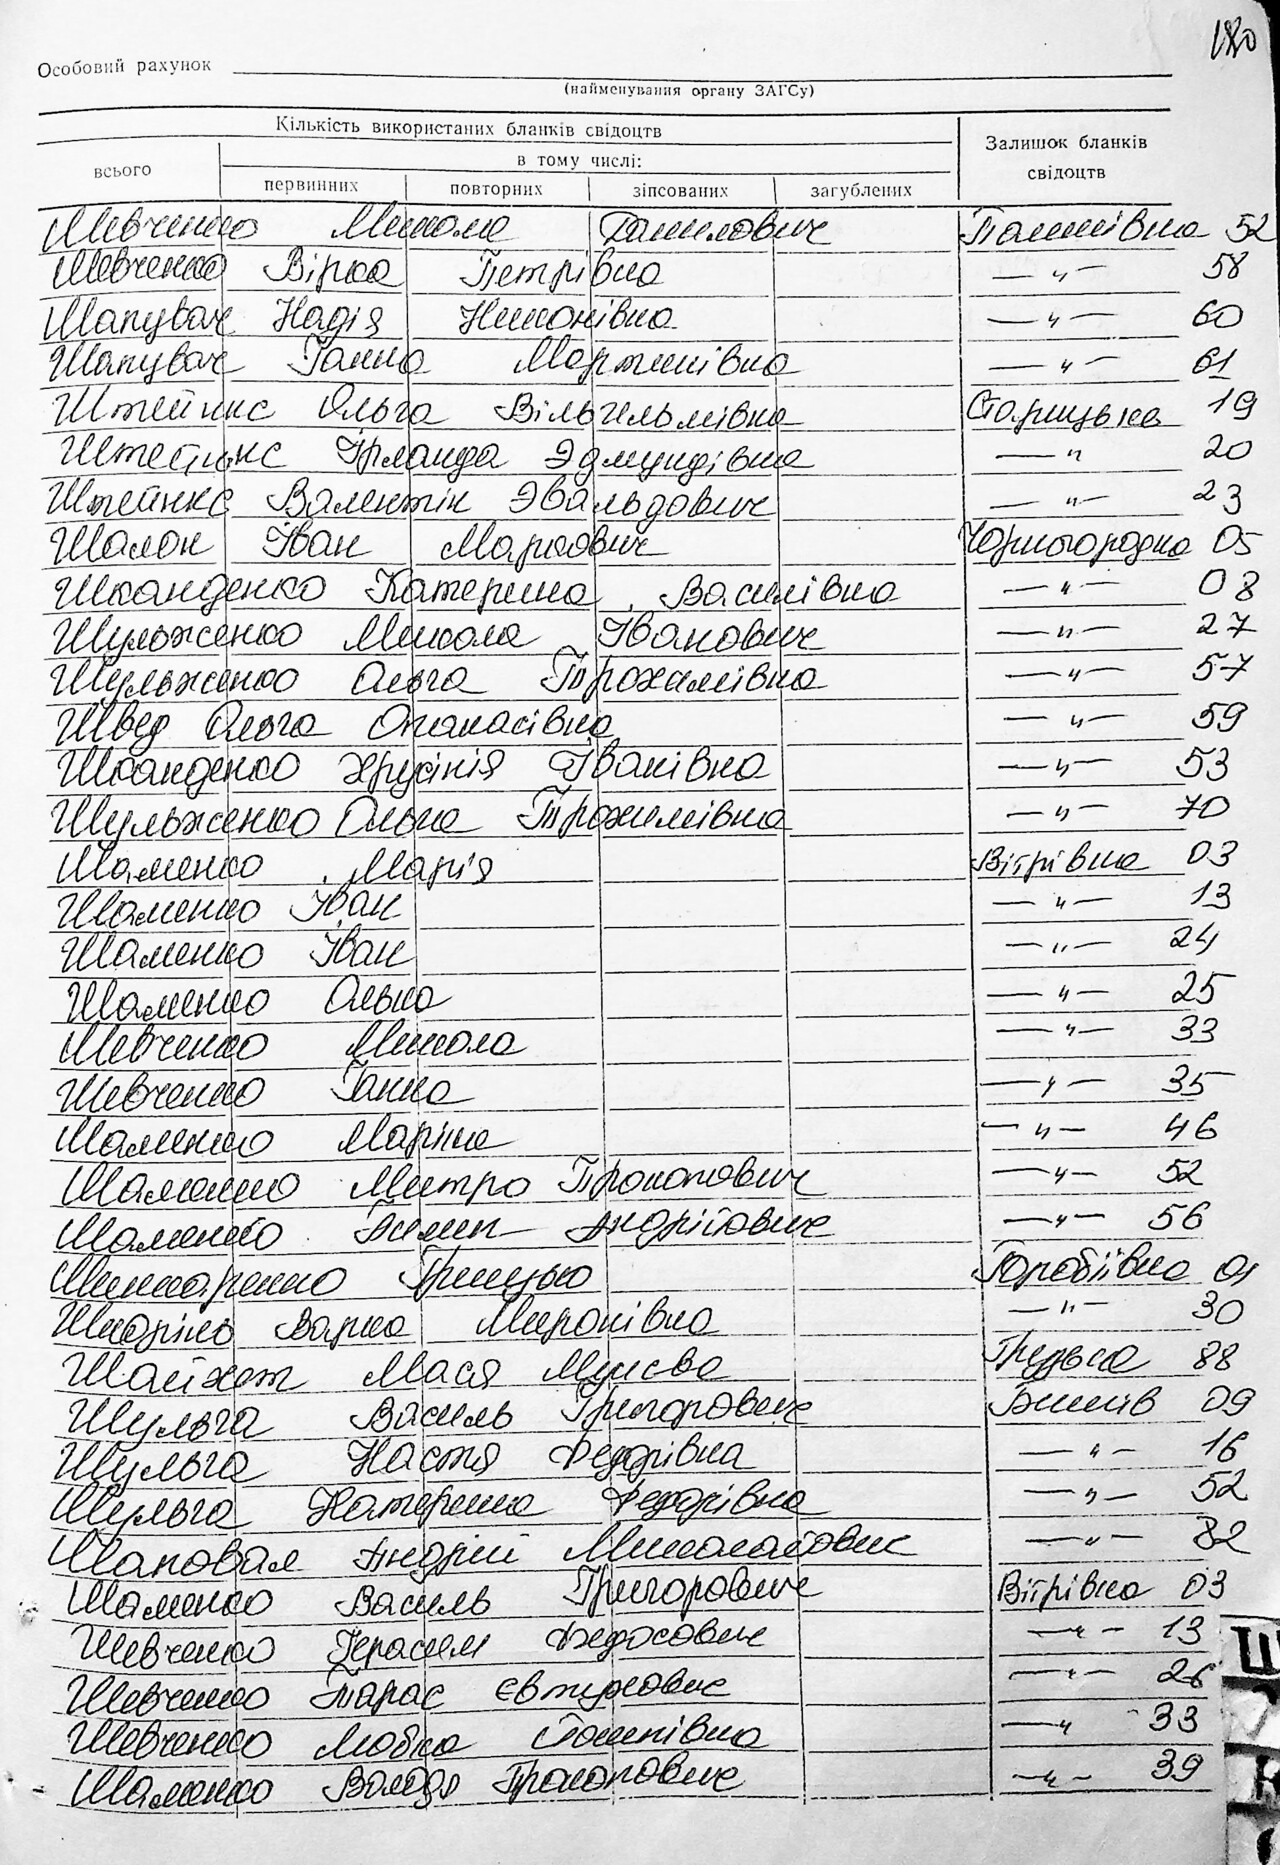 180
Особовий рахунок
(найменування органу ЗАГСу)
Кількість використаних бланків свідоцтв
Залишок бланків свідоцтв
всього
в тому числі:
первинних повторних зіпсованих загублених
Шевченко Микола Данилович 52
Шевченко Вірка Петрівна —"— 58
Шапувач Надія —"— 60
Шапувач Ганна Мартинівна —"— 61
Штейнкс Ольга Вільгельмівна Старицька 19
Штейнкс Ірланда Эдмундівна —"— 20
Штейнкс Валентін Эвальдович —"— 23
Шалон Іван Маркович Чорногородка 05
Шканденко Катерина Василівна —"— 08
Шульженко Микола Іванович —"— 27
Шульженко Ольга Трохимівна —"— 57
Швед Ольга Опанасівна —"— 59
Шканденко Хрусінія Іванівна —"— 53
Шульженко Ольга Трохимівна —"— 70
Шаменко Марія Вітрівка 03
Шаменко Іван —"— 13
Шаменко Іван —"— 24
Шаменко Олька —"— 25
Шевченко Микола —"— 33
Шевченко Ганна —"— 35
Шаменко Маріка —"— 46
Шаменко Митро Прокопович —"— 52
Шаменко Андрійович —"— 56
Шинкаренко Грицько Горобіївка 01
Шкоріно Варка Миронівна —"— 30
Шайхет Мася Мусієва Грузька 88
Шульга Василь Григорович Бишів 09
Шульга Настя Федорівна —"— 16
Шульга Катерина Федорівна —"— 52
Шаповал Андрій Миколайович —"— 82
Шаменко Василь Григорович Вітрівка 03
Шевченко Герасим Федосович —"— 13
Шевченко Тарас Євтухович —"— 26
Шевченко Любка Йосипівна —"— 33
Шаменко Володя Прокопович —"— 39